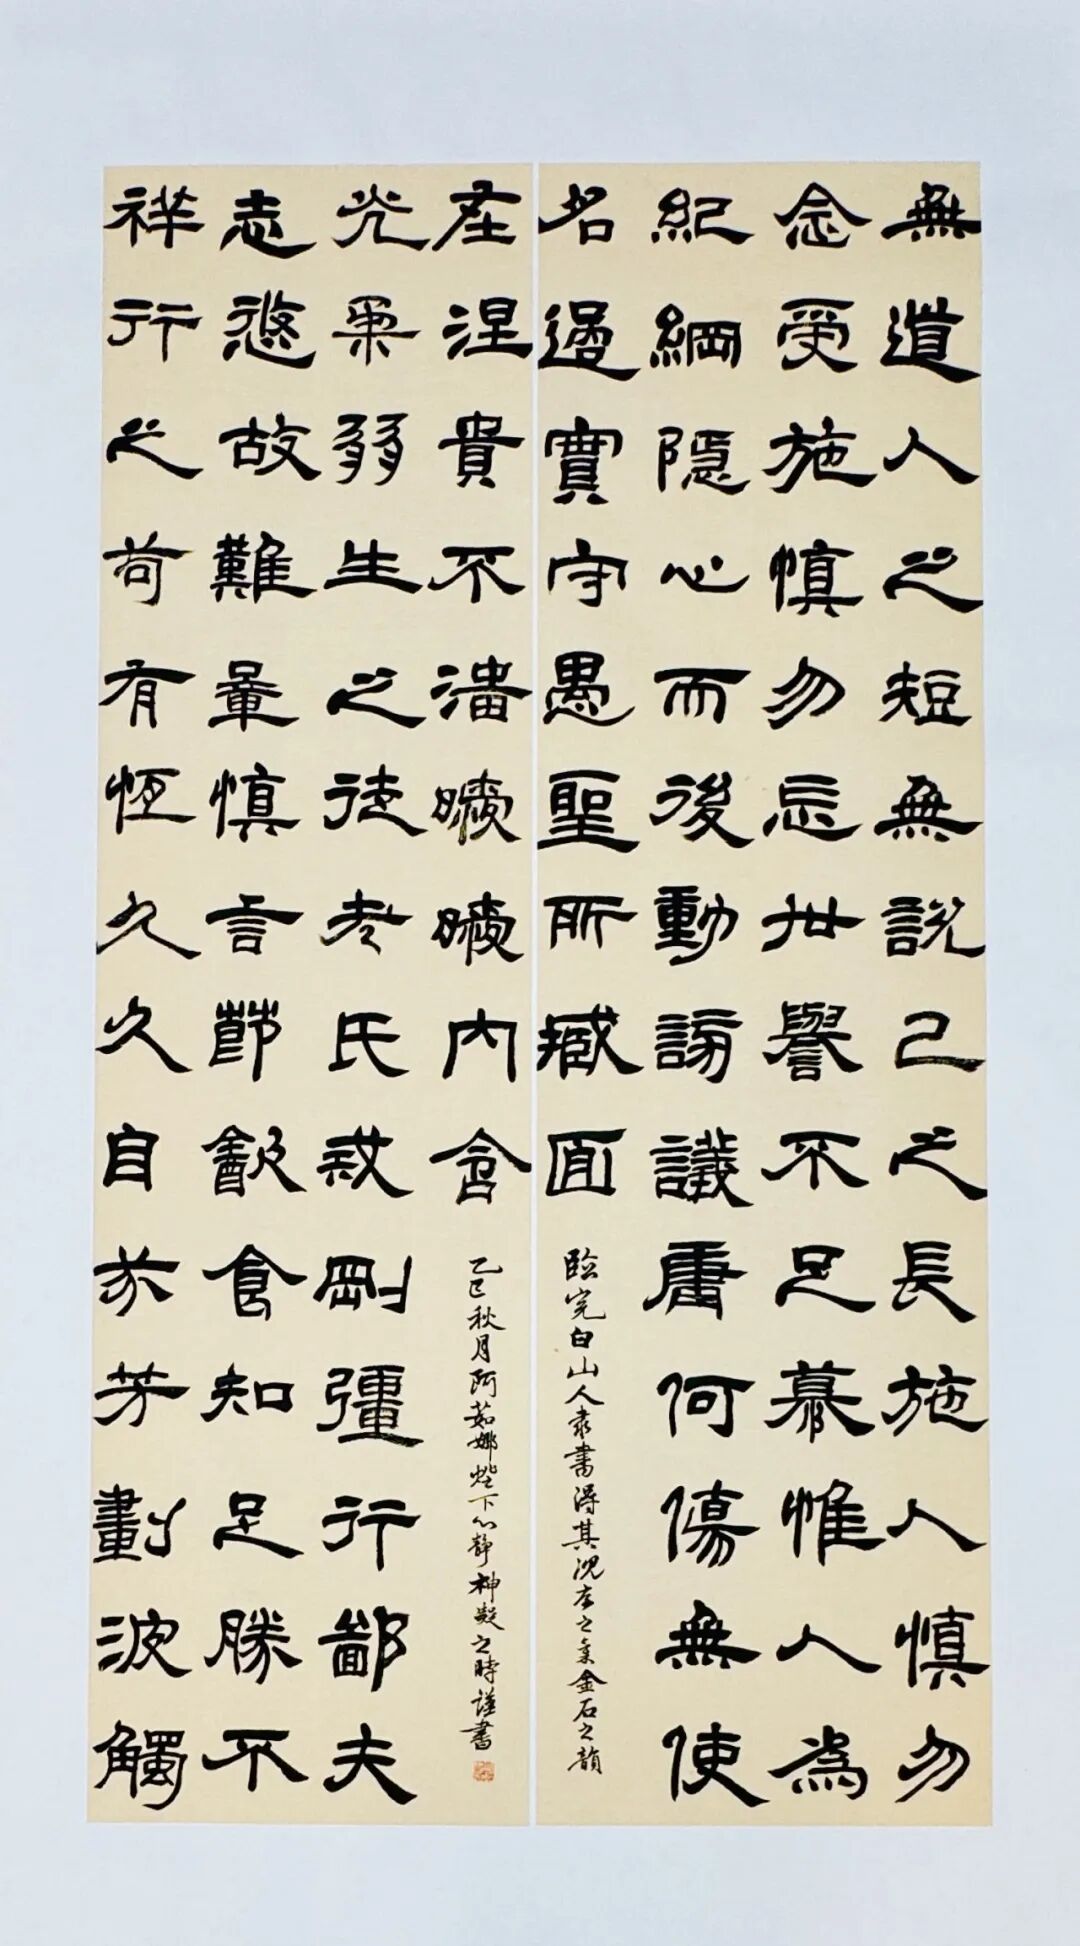 無道人之短無說己之長施人慎勿
念受施慎勿忘世譽不足慕惟人為
紀綱隱心而後動謗議庸何傷無使
名過實守愚聖所臧面
臨完白山人隸書得其沈之氣金石之韻
在涅貴不淄曖曖內含
乙巳秋月阿茹娜燈下心靜神凝之時謹書
光柔弱生之徒老氏戒剛彊行鄙夫
志悠故難量慎言節飲食知足勝不
祥行之苟有恆久久自芬芳劃波觸